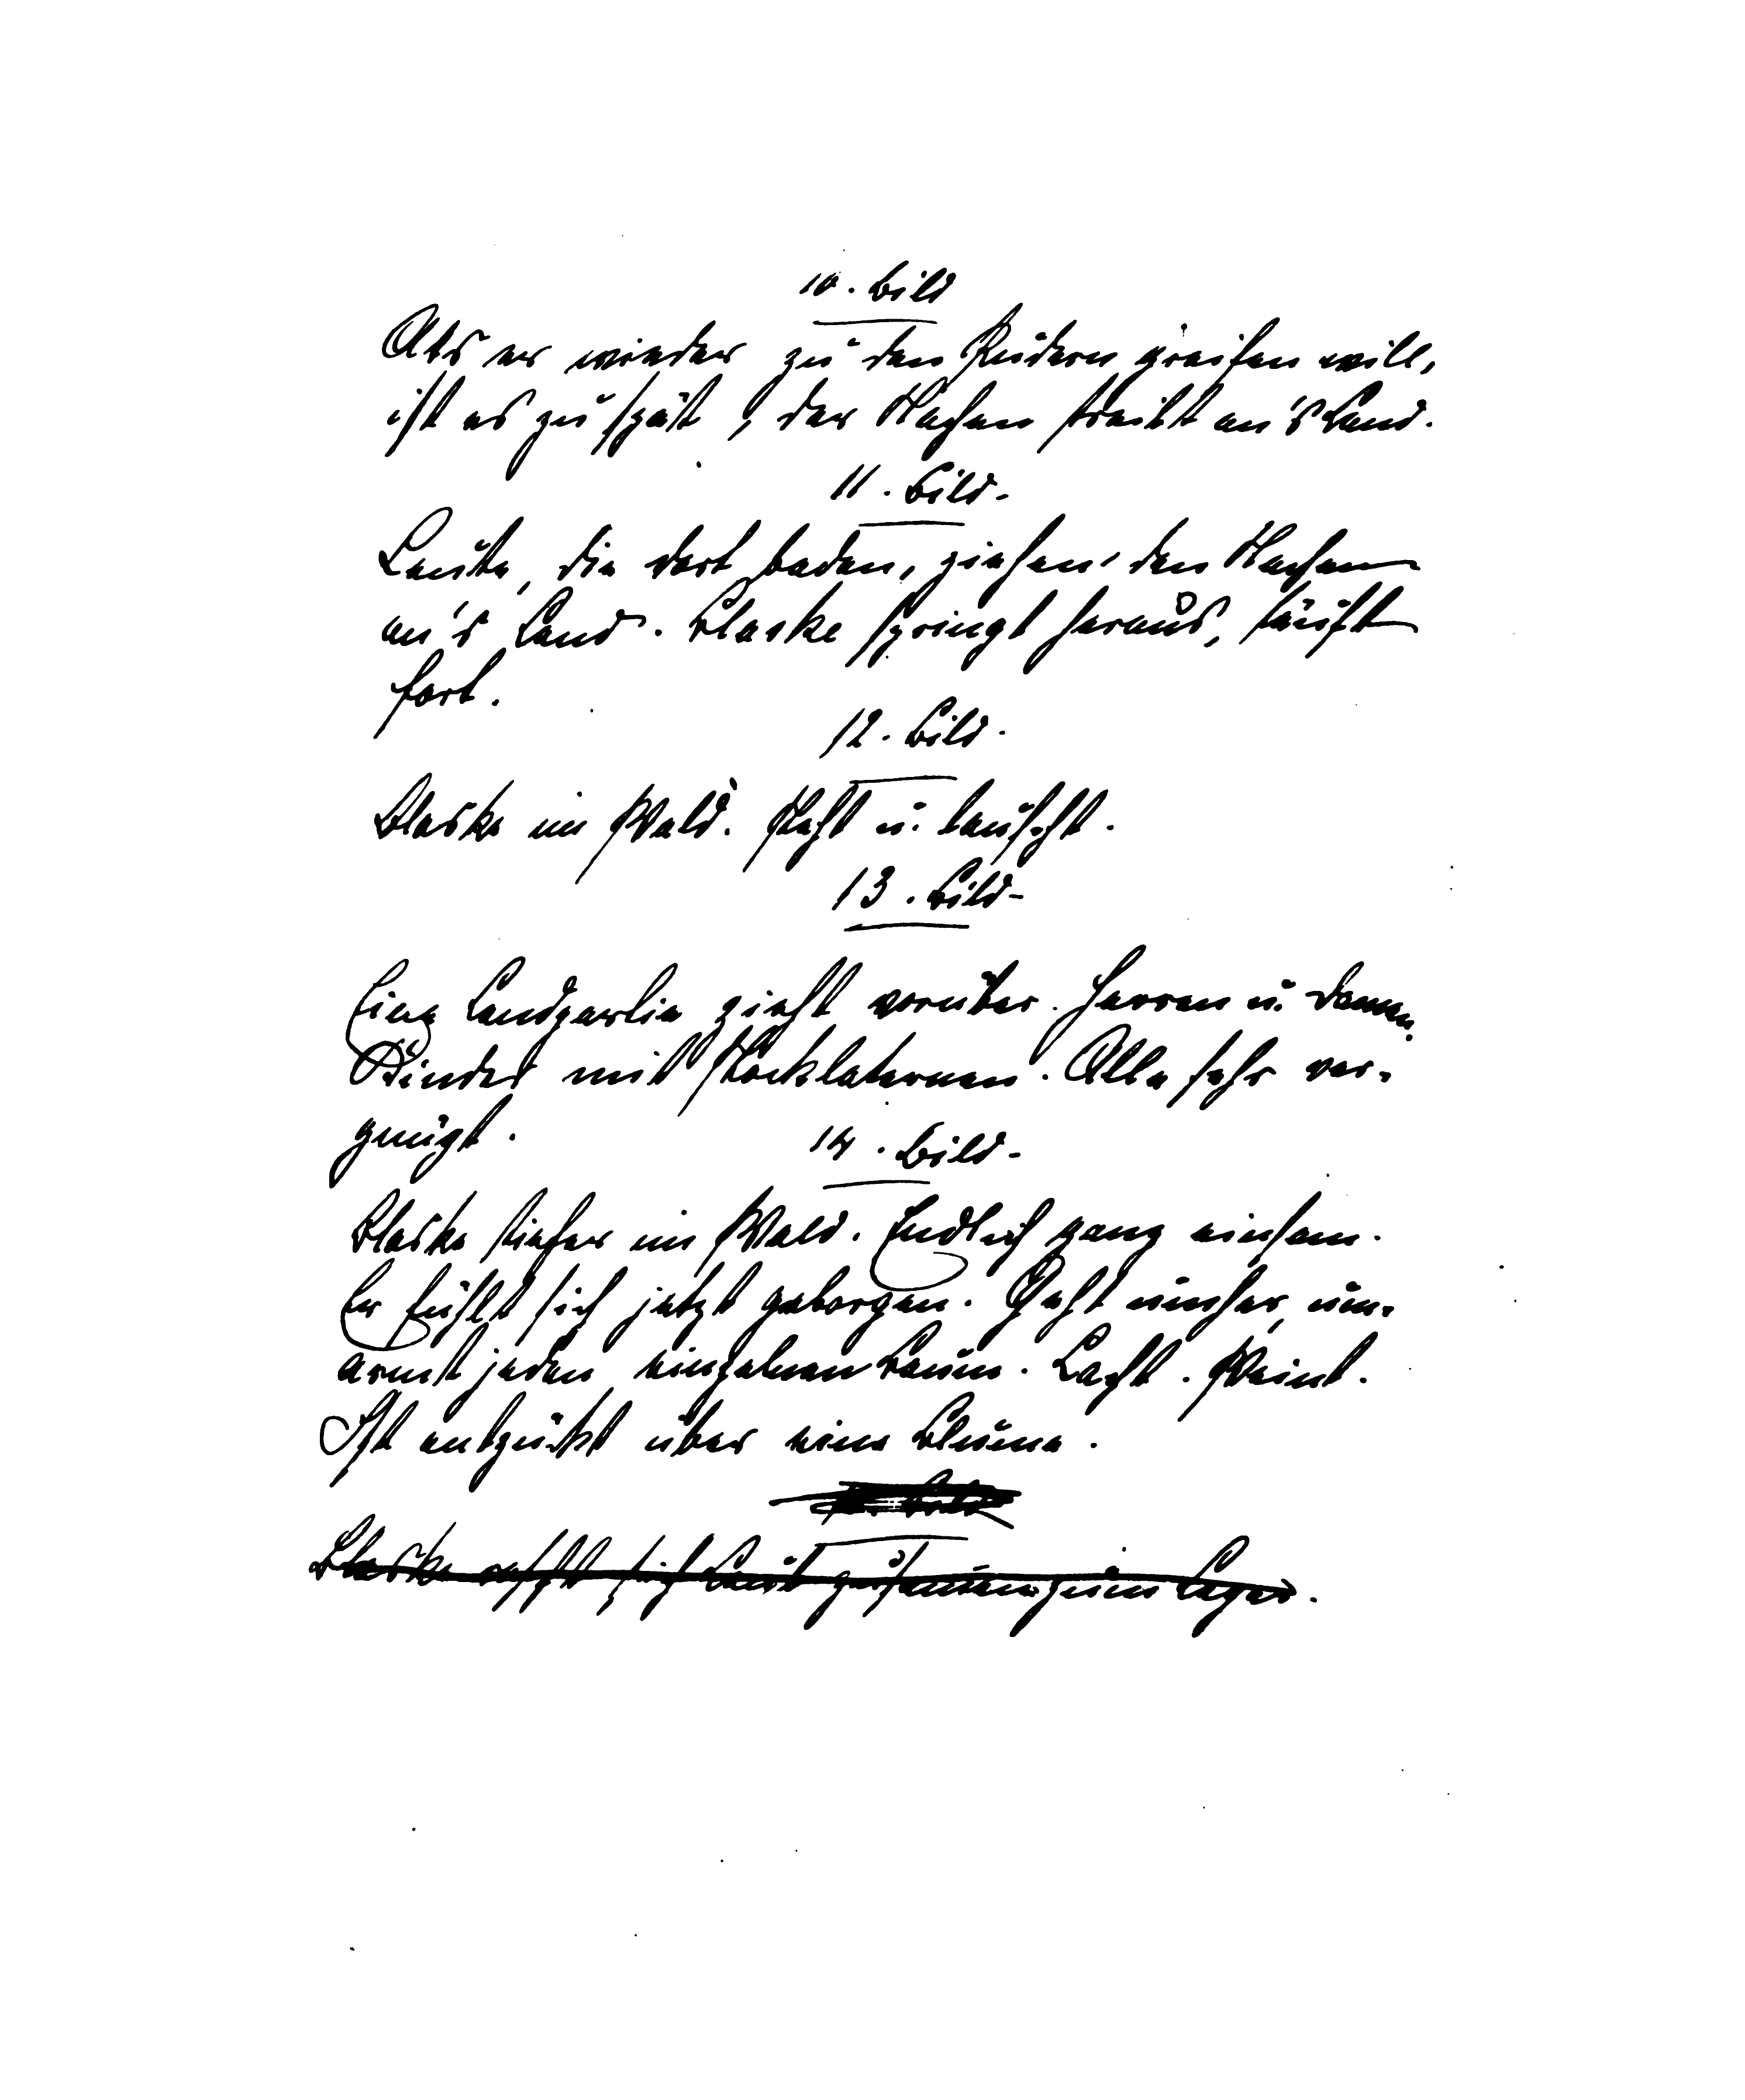 10. Bild
Als er wieder zu den Rudern greifen will,
ist es zu spät, der Nachen treibt an's Land.
11. Bild.
Leute, die dort baden, ziehen den Nachen
an's Land. Blaske springt heraus, läuft
fort.
12. Bild.
Blaske im Wald. Steht u. lauscht.
13. Bild.
Eine Landpartie zieht vorüber. Herren u. Damen.
Kinder mit Stocklaternen. Alle sehr ver-
gnügt.
14. Bild.
Blaske tiefer im Wald. Endlich ganz einsam.
Er fühlt sich jetzt geborgen. Geht umher, um-
armt jeden einzelnen Baum. Lacht. Weint.
Ist entzückt über eine Blume.
Bild
Blaske rafft sich Laub zusammen zum Lager.